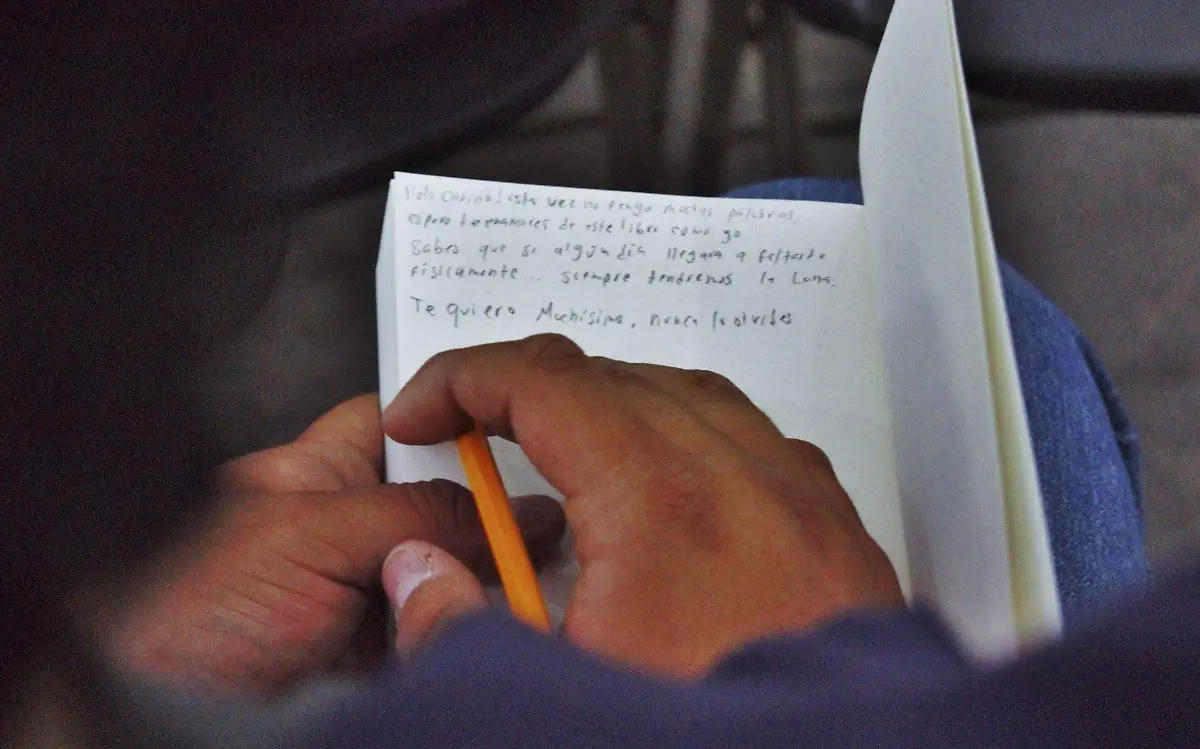 Hola Cariño! esta vez no tengo muchas palabras,
espero te enamores de este libro como yo
Sabes que si algún día llegara a faltarte
físicamente... siempre tendremos la Luna.
Te quiero Muchísimo, nunca lo olvides